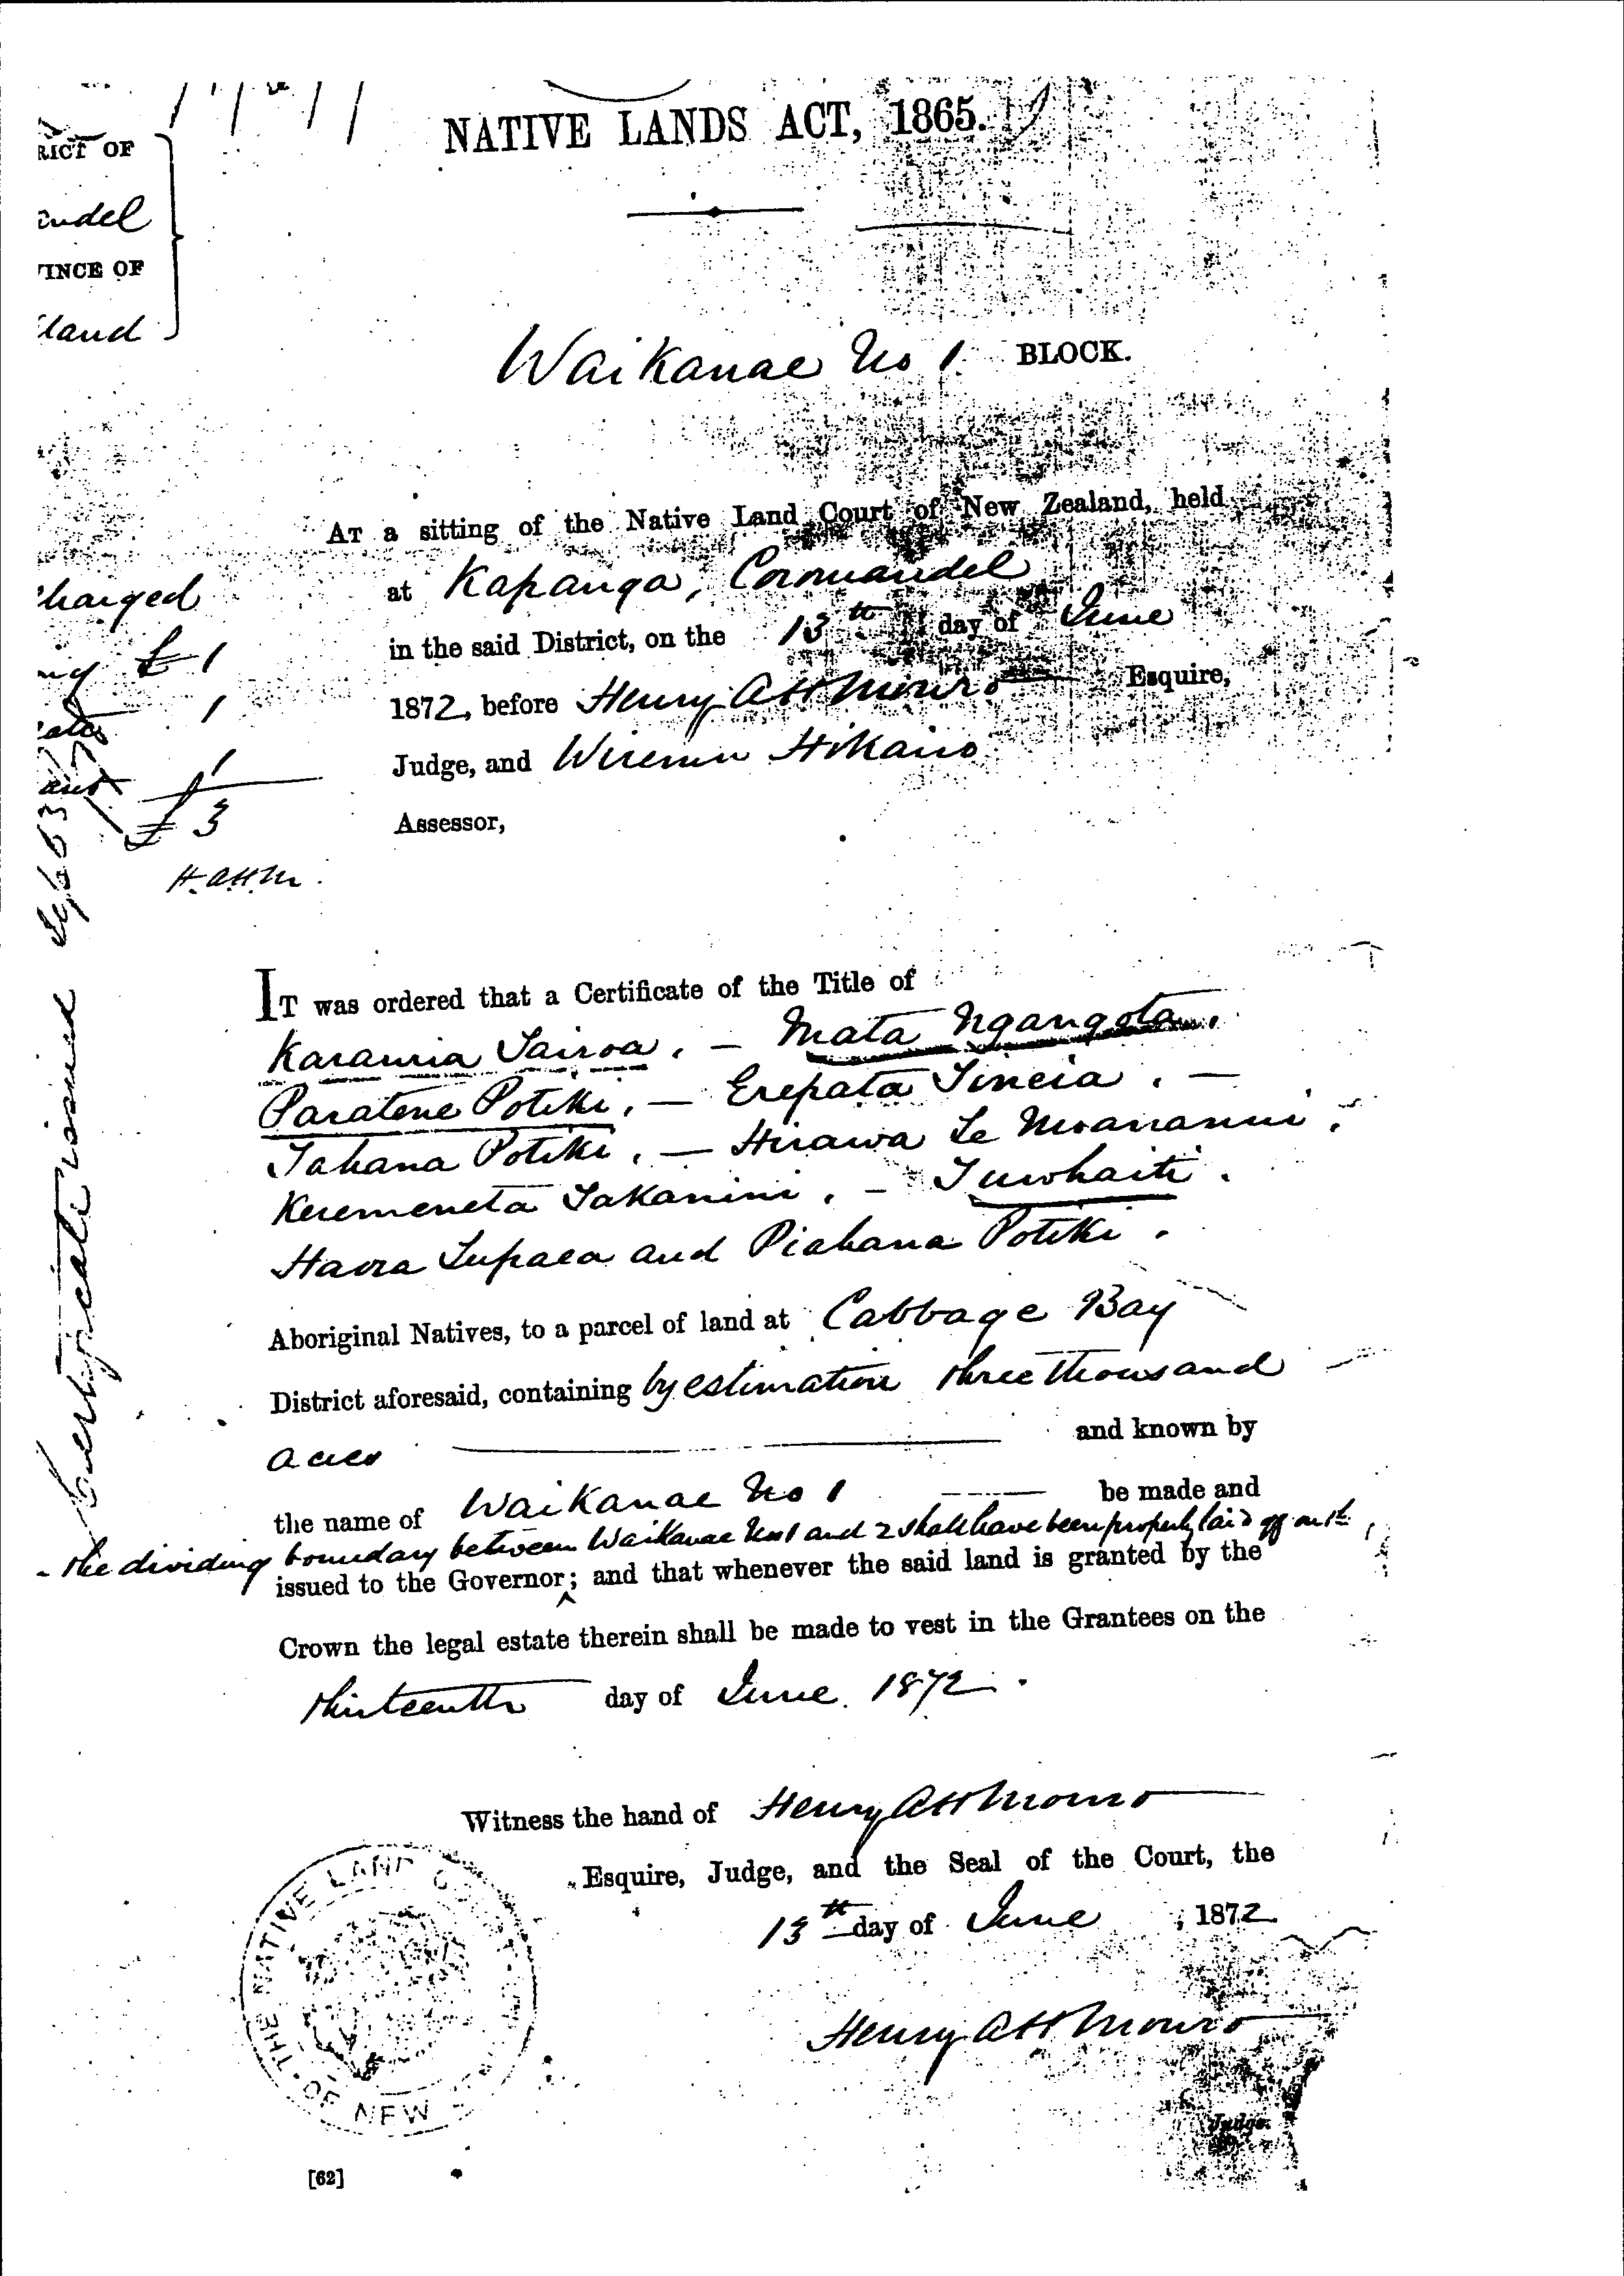 NATIVE LANDS ACT, 1865.
RICT OF
andel
VINCE OF
kland
Waikanae No 1 BLOCK.
AT a sitting of the Native Land Court of New Zealand, held
at Kapanga, Coromandel
in the said District, on the 13th day of June
1872, before Henry A H Monro Esquire,
Judge, and Wiremu Hikairo
Assessor,
charged
ng £ 1
1
1
£ 3
H.A.H.M.
Certificate issued
IT was ordered that a Certificate of the Title of
Karauria Tairoa. — Mata Ngangota.
Paratene Potiki. — Erepata Tineia. —
Tahana Potiki. — Hirawa Te Moananui.
Keremeneta Takanini. — Tuwhaiti.
Haora Tupaea and Piahana Potiki.
Aboriginal Natives, to a parcel of land at Cabbage Bay
District aforesaid, containing by estimation three thousand
acres and known by
the name of Waikanae No 1 be made and
the dividing boundary between Waikanae Nos 1 and 2 shall have been properly laid off on th
issued to the Governor; and that whenever the said land is granted by the
Crown the legal estate therein shall be made to vest in the Grantees on the
thirteenth day of June 1872.
Witness the hand of Henry A H Monro
Esquire, Judge, and the Seal of the Court, the
13th day of June, 1872
Henry A H Monro
Judge.
THE NATIVE LAND COURT OF NEW
[62]